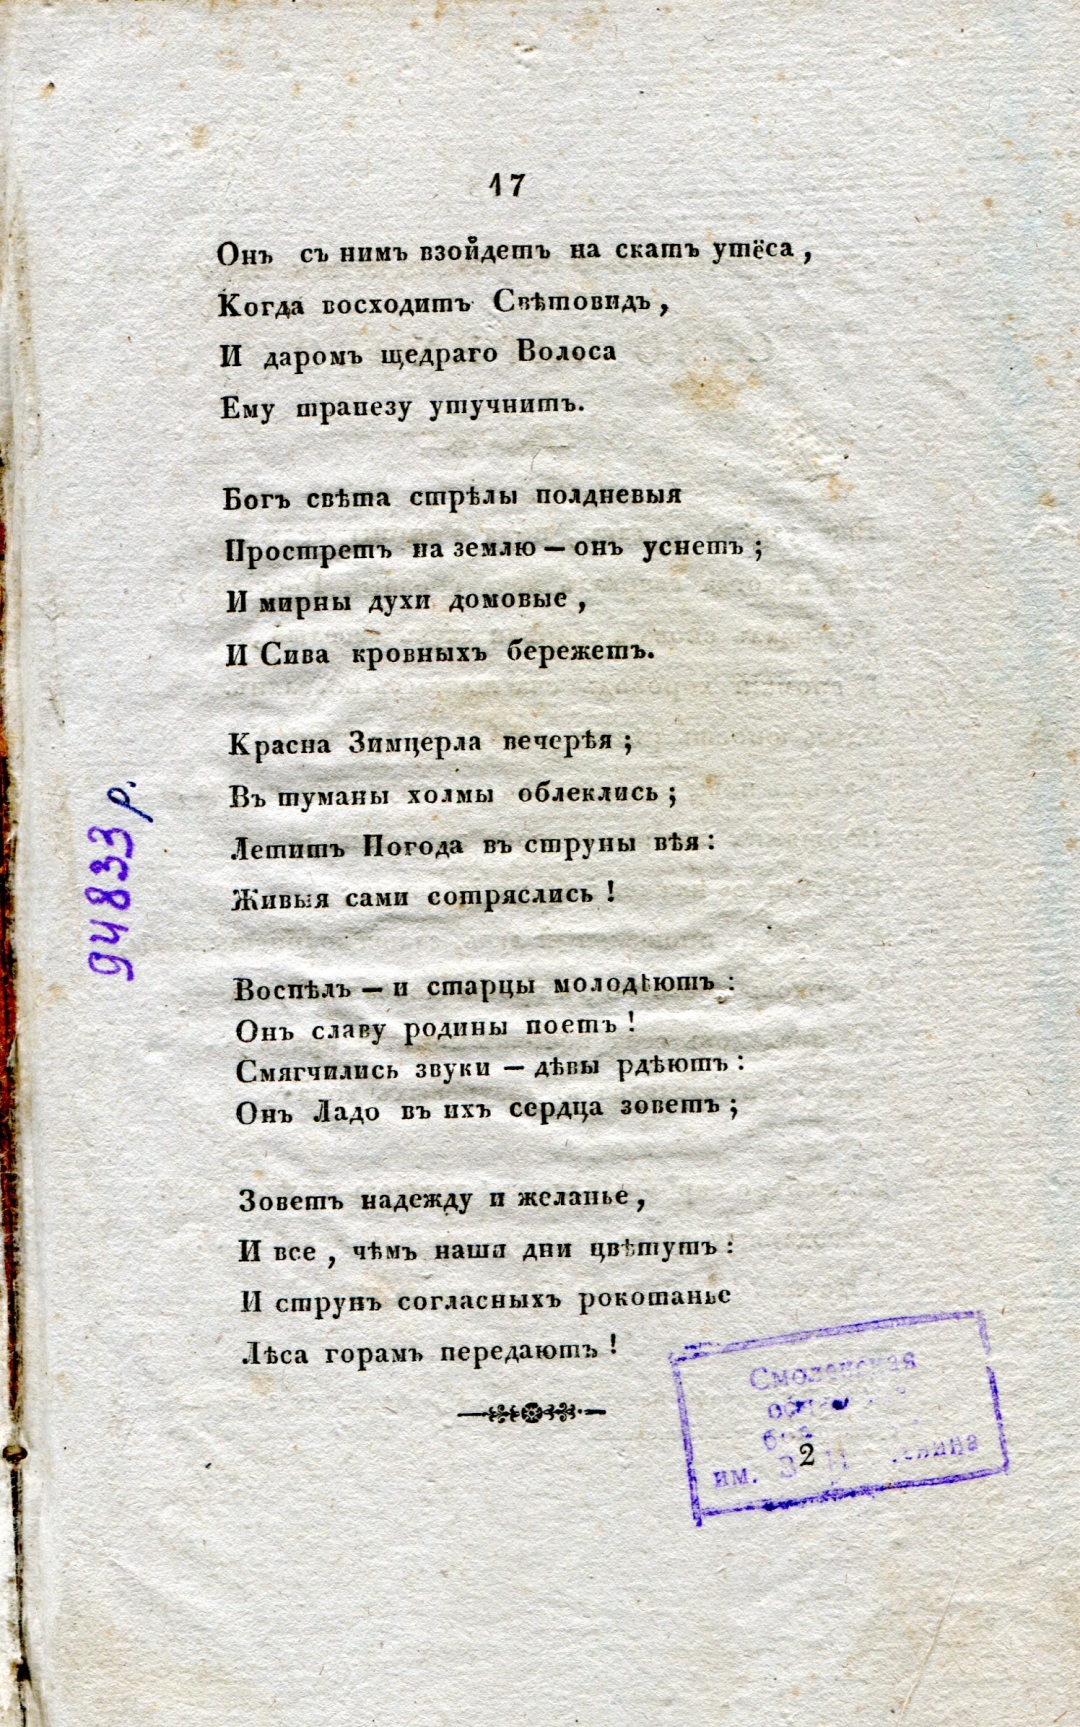 17
Онъ съ нимъ взойдетъ на скатъ утёса,
Когда восходитъ Свѣтовидъ,
И даромъ щедраго Волоса
Ему трапезу утучнитъ.
Богъ свѣта стрѣлы полдневыя
Простретъ на землю — онъ уснетъ;
И мирны духи домовые,
И Сива кровныхъ бережетъ.
Красна Зимцерла вечерѣя;
Въ туманы холмы облеклись;
Летитъ Погода въ струны вѣя:
Живыя сами сотряслись!
Воспѣлъ — и старцы молодѣютъ:
Онъ славу родины поетъ!
Смягчились звуки — дѣвы рдѣютъ:
Онъ Ладо въ ихъ сердца зоветъ;
Зоветъ надежду и желанье,
И все, чѣмъ наши дни цвѣтутъ:
И струнъ согласныхъ рокотанье
Лѣса горамъ передаютъ!
94833 р.
Смоленская
им.
2